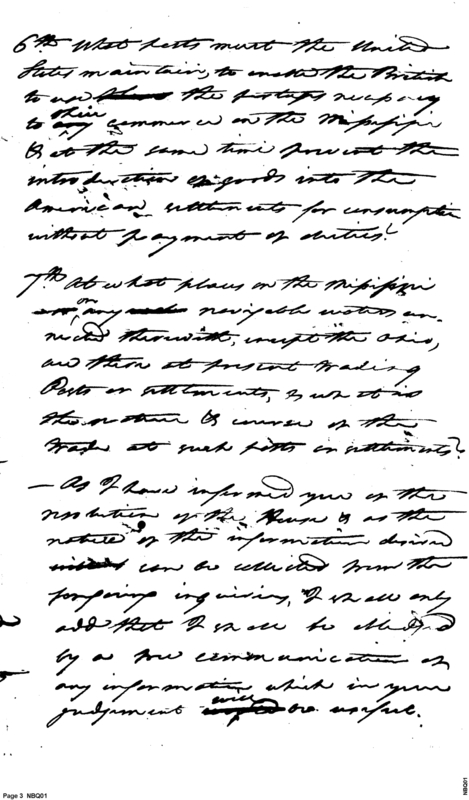 6th What posts must the United
States maintain, to enable the British
to use the portages necessary
to their commerce on the Mississippi
& at the same time prevent the
introduction of goods into the
American settlements for consumption
without payment of duties?
7th At what places on the Mississippi
or on any navigable waters con-
nected therewith, except the Ohio,
are there at present trading
Posts or settlements, & what is
the nature & course of the
trade at such posts or settlements?
— As I have informed you of the
resolution of the House & as the
nature of the information desired
can be collected from the
foregoing inquiries, I shall only
add that I shall be obliged
by a free communication of
any information which in your
judgment will be useful.
Page 3 NBQ01
NBQ01